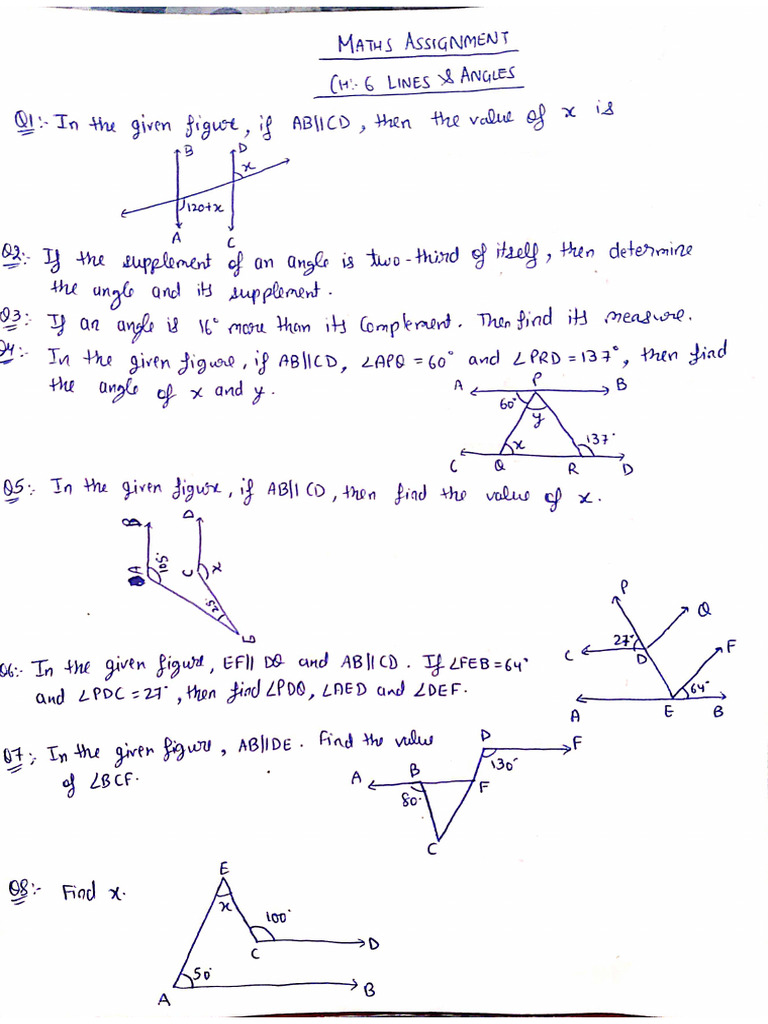 MATHS ASSIGNMENT
CH:- 6 LINES & ANGLES
Q1:- In the given figure, if AB||CD, then the value of x is
B D
x
120+x
A C
Q2:- If the supplement of an angle is two-third of itself, then determine
the angle and its supplement.
Q3:- If an angle is 16° more than its complement. Then find its measure.
Q4:- In the given figure, if AB||CD, ∠APQ = 60° and ∠PRD = 137°, then find
the angle of x and y.
A P B
60°
y
x 137°
C Q R D
Q5:- In the given figure, if AB||CD, then find the value of x.
B D
A 105° C x
25°
E
P
Q
27° F
C D
64°
A E B
Q6:- In the given figure, EF|| DQ and AB||CD. If ∠FEB = 64°
and ∠PDC = 27°, then find ∠PDQ, ∠AED and ∠DEF.
Q7:- In the given figure, AB||DE. Find the value
of ∠BCF.
D F
130°
A B
80° F
C
Q8:- Find x.
E
x
100°
C D
50°
A B